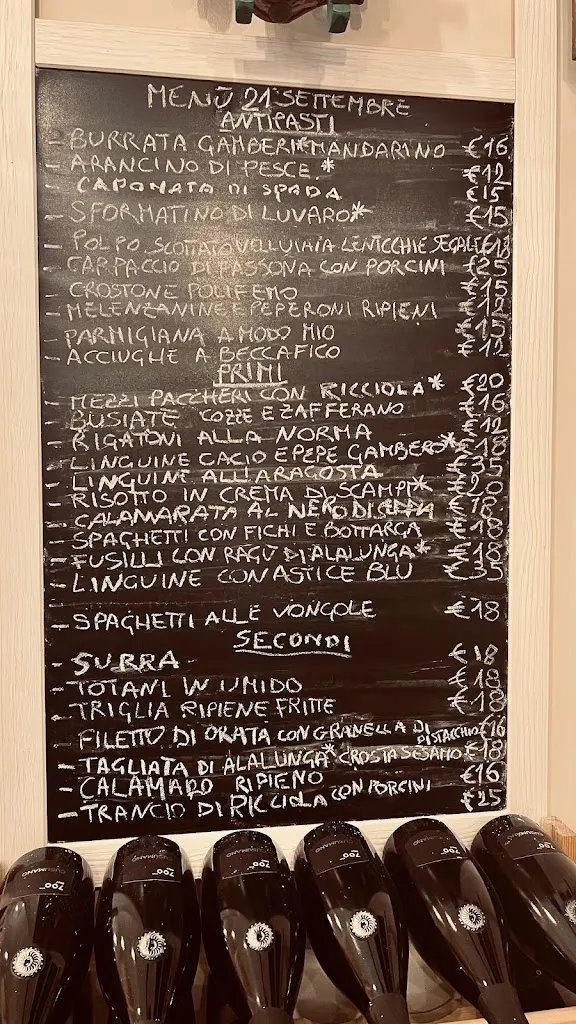 MENÙ 21 SETTEMBRE
ANTIPASTI
- BURRATA GAMBERI* MANDARINO €16
- ARANCINO DI PESCE.* €12
- CAPONATA DI SPADA €15
- SFORMATINO DI LUVARO* €15
- POLPO SCOTTATO VELLUTATA LENTICCHIE SEGALE €18
- CARPACCIO DI FASSONA CON PORCINI €25
- CROSTONE POLIFEMO €15
- MELENZANINE E PEPERONI RIPIENI €12
- PARMIGIANA A MODO MIO €15
- ACCIUGHE A BECCAFICO €12
PRIMI
- MEZZI PACCHERI CON RICCIOLA* €20
- BUSIATE COZZE E ZAFFERANO €16
- RIGATONI ALLA NORMA €12
- LINGUINE CACIO E PEPE GAMBERO* €18
- LINGUINE ALL'ARAGOSTA €35
- RISOTTO IN CREMA DI SCAMPI* €20
- CALAMARATA AL NERO DI SEPPIA €18
- SPAGHETTI CON FICHI E BOTTARGA €18
- FUSILLI CON RAGÙ DI ALALUNGA* €18
- LINGUINE CON ASTICE BLU €35
- SPAGHETTI ALLE VONGOLE €18
SECONDI
- SURRA €18
- TOTANI IN UMIDO €18
- TRIGLIA RIPIENE FRITTE €18
- FILETTO DI ORATA CON GRANELLA DI PISTACCHIO €16
- TAGLIATA DI ALALUNGA* CROSTA SESAMO €18
- CALAMARO RIPIENO €16
- TRANCIO DI RICCIOLA CON PORCINI €25